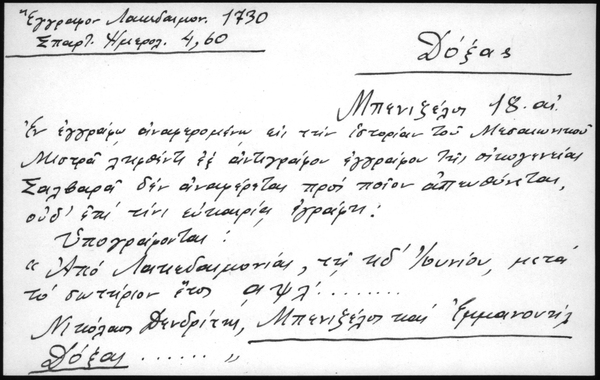 Ἔγγραφον Λακεδαιμον. 1730
Σπαρτ. Ἡμερολ. 4,60
Δόξας
Μπενιζέλος 18. αἰ.
Ἐν ἐγγράφῳ ἀναφερομένῳ εἰς τὴν ἱστορίαν τοῦ Μεσαιωνικοῦ
Μιστρᾶ ληφθέντι ἐξ ἀντιγράφου ἐγγράφου τῆς οἰκογενείας
Σαλβαρᾶ δὲν ἀναφέρεται πρὸς ποῖον ἀπευθύνεται,
οὐδ' ἐπὶ τίνι εὐκαιρίᾳ ἐγράφη:
Ὑπογράφονται:
" Ἀπὸ Λακεδαιμονίας, τῇ κδ' Ἰουνίου, μετὰ
τὸ σωτήριον ἔτος αψλ'........
Νικόλαος Δενδρίτης, Μπενιζέλος καὶ Ἐμμανουὴλ
Δόξας ...... "